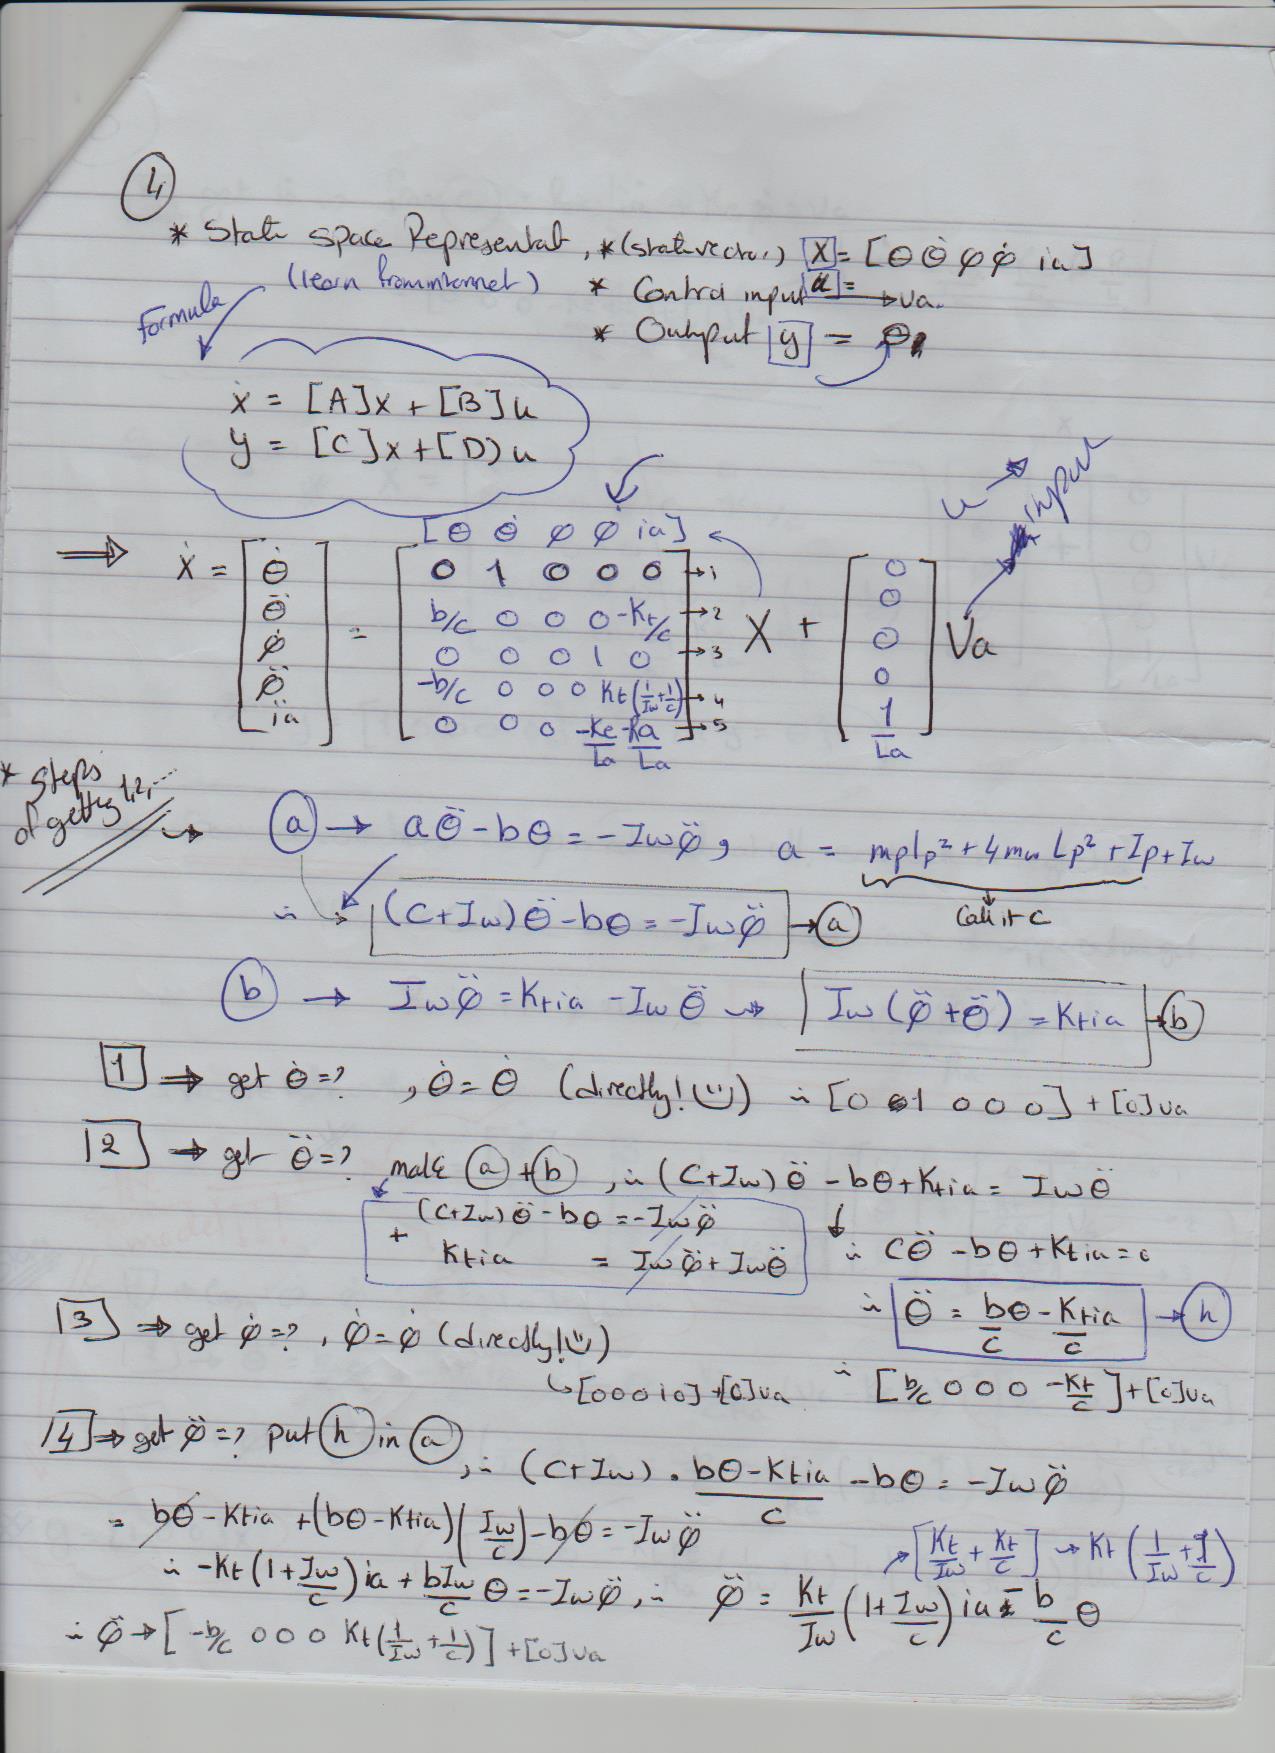 4
* State space Represental, * (state vector) X = [θ θ̇ φ φ̇ ia]
(learn from internet) * Control input u = → Va.
Formula * Output y = θ,
ẋ = [A]x + [B]u
y = [C]x + [D]u
u → input
[θ θ̇ φ φ̇ ia]
⇒ Ẋ = [θ̇ θ̈ φ̇ φ̈ i̇a] = [
0 1 0 0 0 → 1
b/c 0 0 0 -Kt/c → 2
0 0 0 1 0 → 3
-b/c 0 0 0 Kt(1/Iw + 1/c) → 4
0 0 0 -Ke/La -Ra/La → 5
] X + [0 0 0 0 1/La] Va
* Steps of getting 1,2,...
(a) → aθ̈ - bθ = -Iwφ̈, a = mplp² + 4mw Lp² + Ip + Iw
call it C
∴ (C+Iw)θ̈ - bθ = -Iwφ̈ → (a)
(b) → Iwφ̈ = Ktia - Iwθ̈ ⇝ Iw(φ̈ + θ̈) = Ktia → (b)
1 ⇒ get θ̇ =? , θ̇ = θ̇ (directly! ) ∴ [0 1 0 0 0] + [0]Va
2 ⇒ get θ̈ =? make (a) + (b), ∴ (C+Iw)θ̈ - bθ + Ktia = Iwθ̈
(C+Iw)θ̈ - bθ = -Iwφ̈
+ Ktia = Iwφ̈ + Iwθ̈
∴ Cθ̈ - bθ + Ktia = 0
∴ θ̈ = bθ/c - Ktia/c → (h)
∴ [b/c 0 0 0 -Kt/c] + [0]Va
3 ⇒ get φ̇ =? , φ̇ = φ̇ (directly! )
↳ [0 0 0 1 0] + [0]Va
4 ⇒ get φ̈ =? Put (h) in (a)
, ∴ (C+Iw) . (bθ - Ktia)/c - bθ = -Iwφ̈
= bθ - Ktia + (bθ - Ktia)(Iw/c) - bθ = -Iwφ̈
→ [Kt/Iw + Kt/c] → Kt(1/Iw + 1/c)
∴ -Kt(1 + Iw/c)ia + bIw/c θ = -Iwφ̈, ∴ φ̈ = Kt/Iw (1 + Iw/c) ia - b/c θ
∴ φ̈ → [-b/c 0 0 0 Kt(1/Iw + 1/c)] + [0]Va